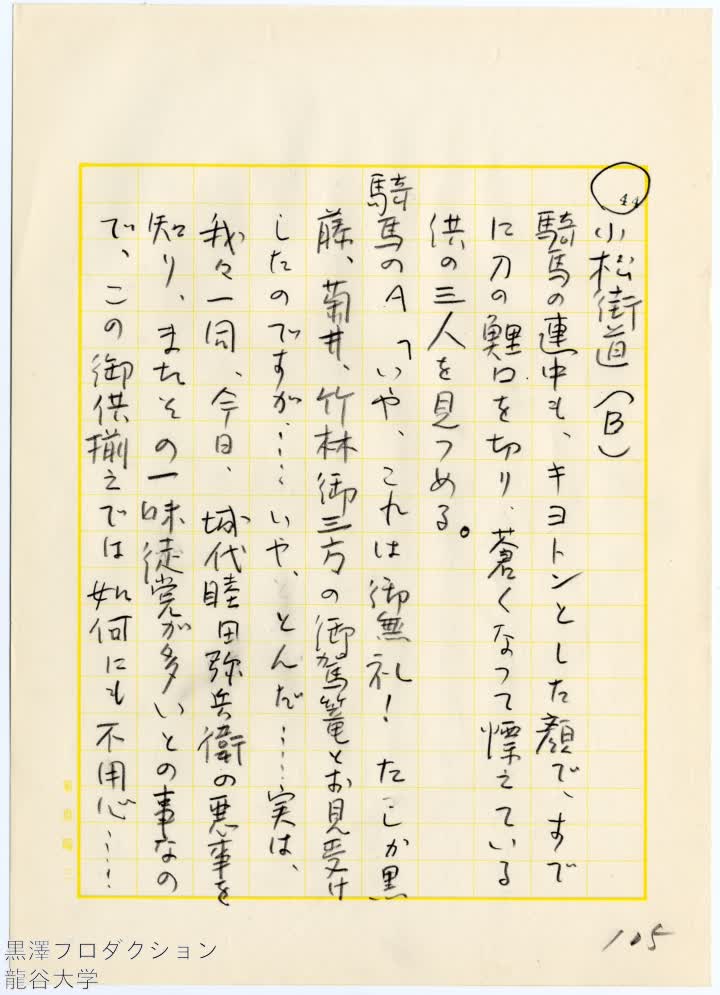 44
小松街道（B）
騎馬の連中も、キヨトンとした顔で、すで
に刀の鯉口を切り、蒼くなって慄えている
供の三人を見つめる。
騎馬のA「いや、これは御無礼！　たしか黒
藤、菊井、竹林御三方の御駕篭とお見受け
したのですが……いや、とんだ……実は、
我々一同、今日、城代睦田弥兵衛の悪事を
知り、またその一味徒党が多いとの事なの
で、この御供揃えでは如何にも不用心……
105
黒澤プロダクション
龍谷大学